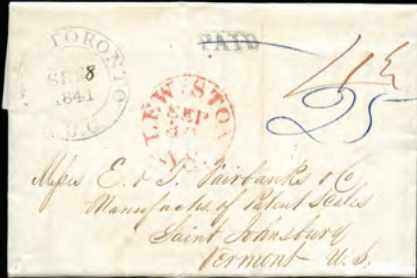 TORONTO
SE 28
1841
U.C
PAID
LEWISTO
SEP
25
Messrs E. & T. Fairbanks & Co
Manufacts. of Patent Scales
Saint Johnsbury
Vermont U.S.